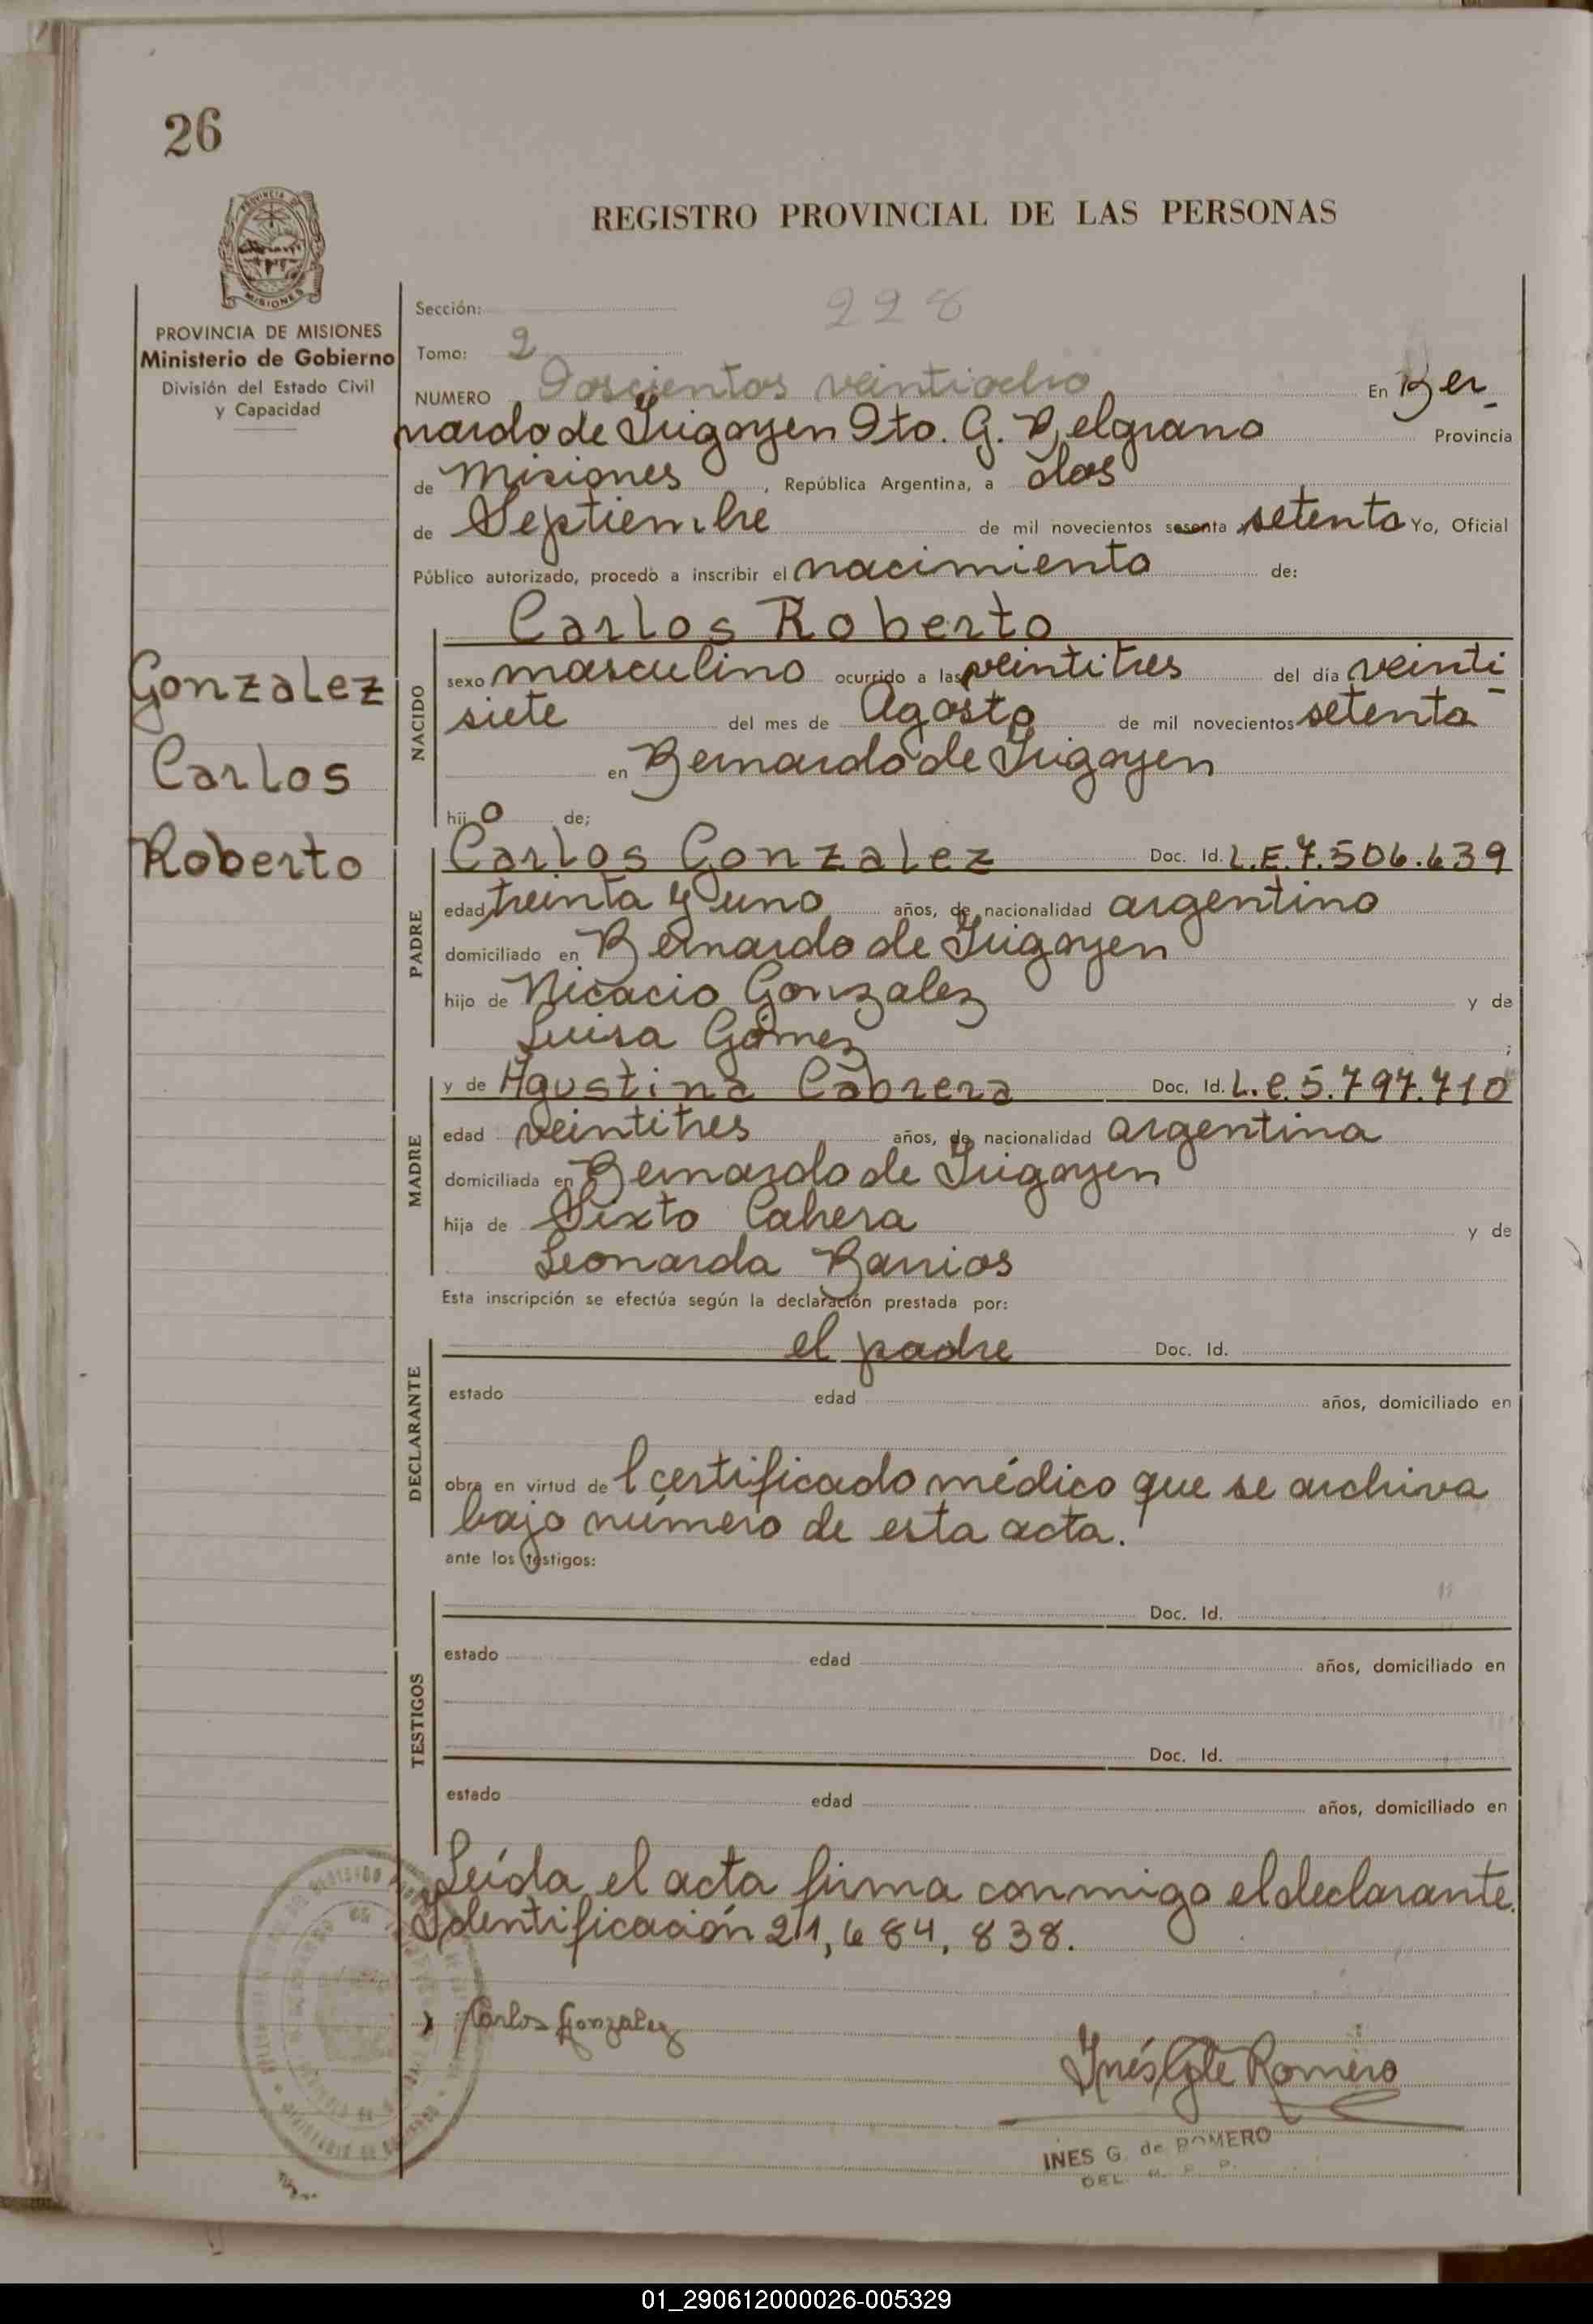 26
REGISTRO PROVINCIAL DE LAS PERSONAS
PROVINCIA DE MISIONES
Ministerio de Gobierno
División del Estado Civil
y Capacidad
MISIONES
Gonzalez
Carlos
Roberto
Sección: 228
Tomo: 2
NUMERO Doscientos veintiocho En Ber-
nardo de Irigoyen Dto. G. Belgrano Provincia
de Misiones, República Argentina, a dos
de Septiembre de mil novecientos sesenta setenta Yo, Oficial
Público autorizado, procedo a inscribir el nacimiento de:
Carlos Roberto
NACIDO
sexo masculino ocurrido a las veintitres del día veinti-
siete del mes de Agosto de mil novecientos setenta
en Bernardo de Irigoyen
hijo de;
PADRE
Carlos Gonzalez Doc. Id. L.E.7.506.639
edad treinta y uno años, de nacionalidad argentino
domiciliado en Bernardo de Irigoyen
hijo de Nicacio Gonzalez y de
Luisa Gómez ;
MADRE
y de Agustina Cabrera Doc. Id. L.C.5.797.710
edad veintitres años, de nacionalidad argentina
domiciliada en Bernardo de Irigoyen
hija de Sixto Cabrera y de
Leonarda Barrios
Esta inscripción se efectúa según la declaración prestada por:
DECLARANTE
el padre Doc. Id.
estado edad años, domiciliado en
obra en virtud del certificado médico que se archiva
bajo número de esta acta.
ante los testigos:
TESTIGOS
Doc. Id.
estado edad años, domiciliado en
Doc. Id.
estado edad años, domiciliado en
Leída el acta firma conmigo el declarante.
Identificación 21,684,838.
Carlos Gonzalez
Inés G de Romero
INES G. de ROMERO
DEL. R. P. P.
01_290612000026-005329